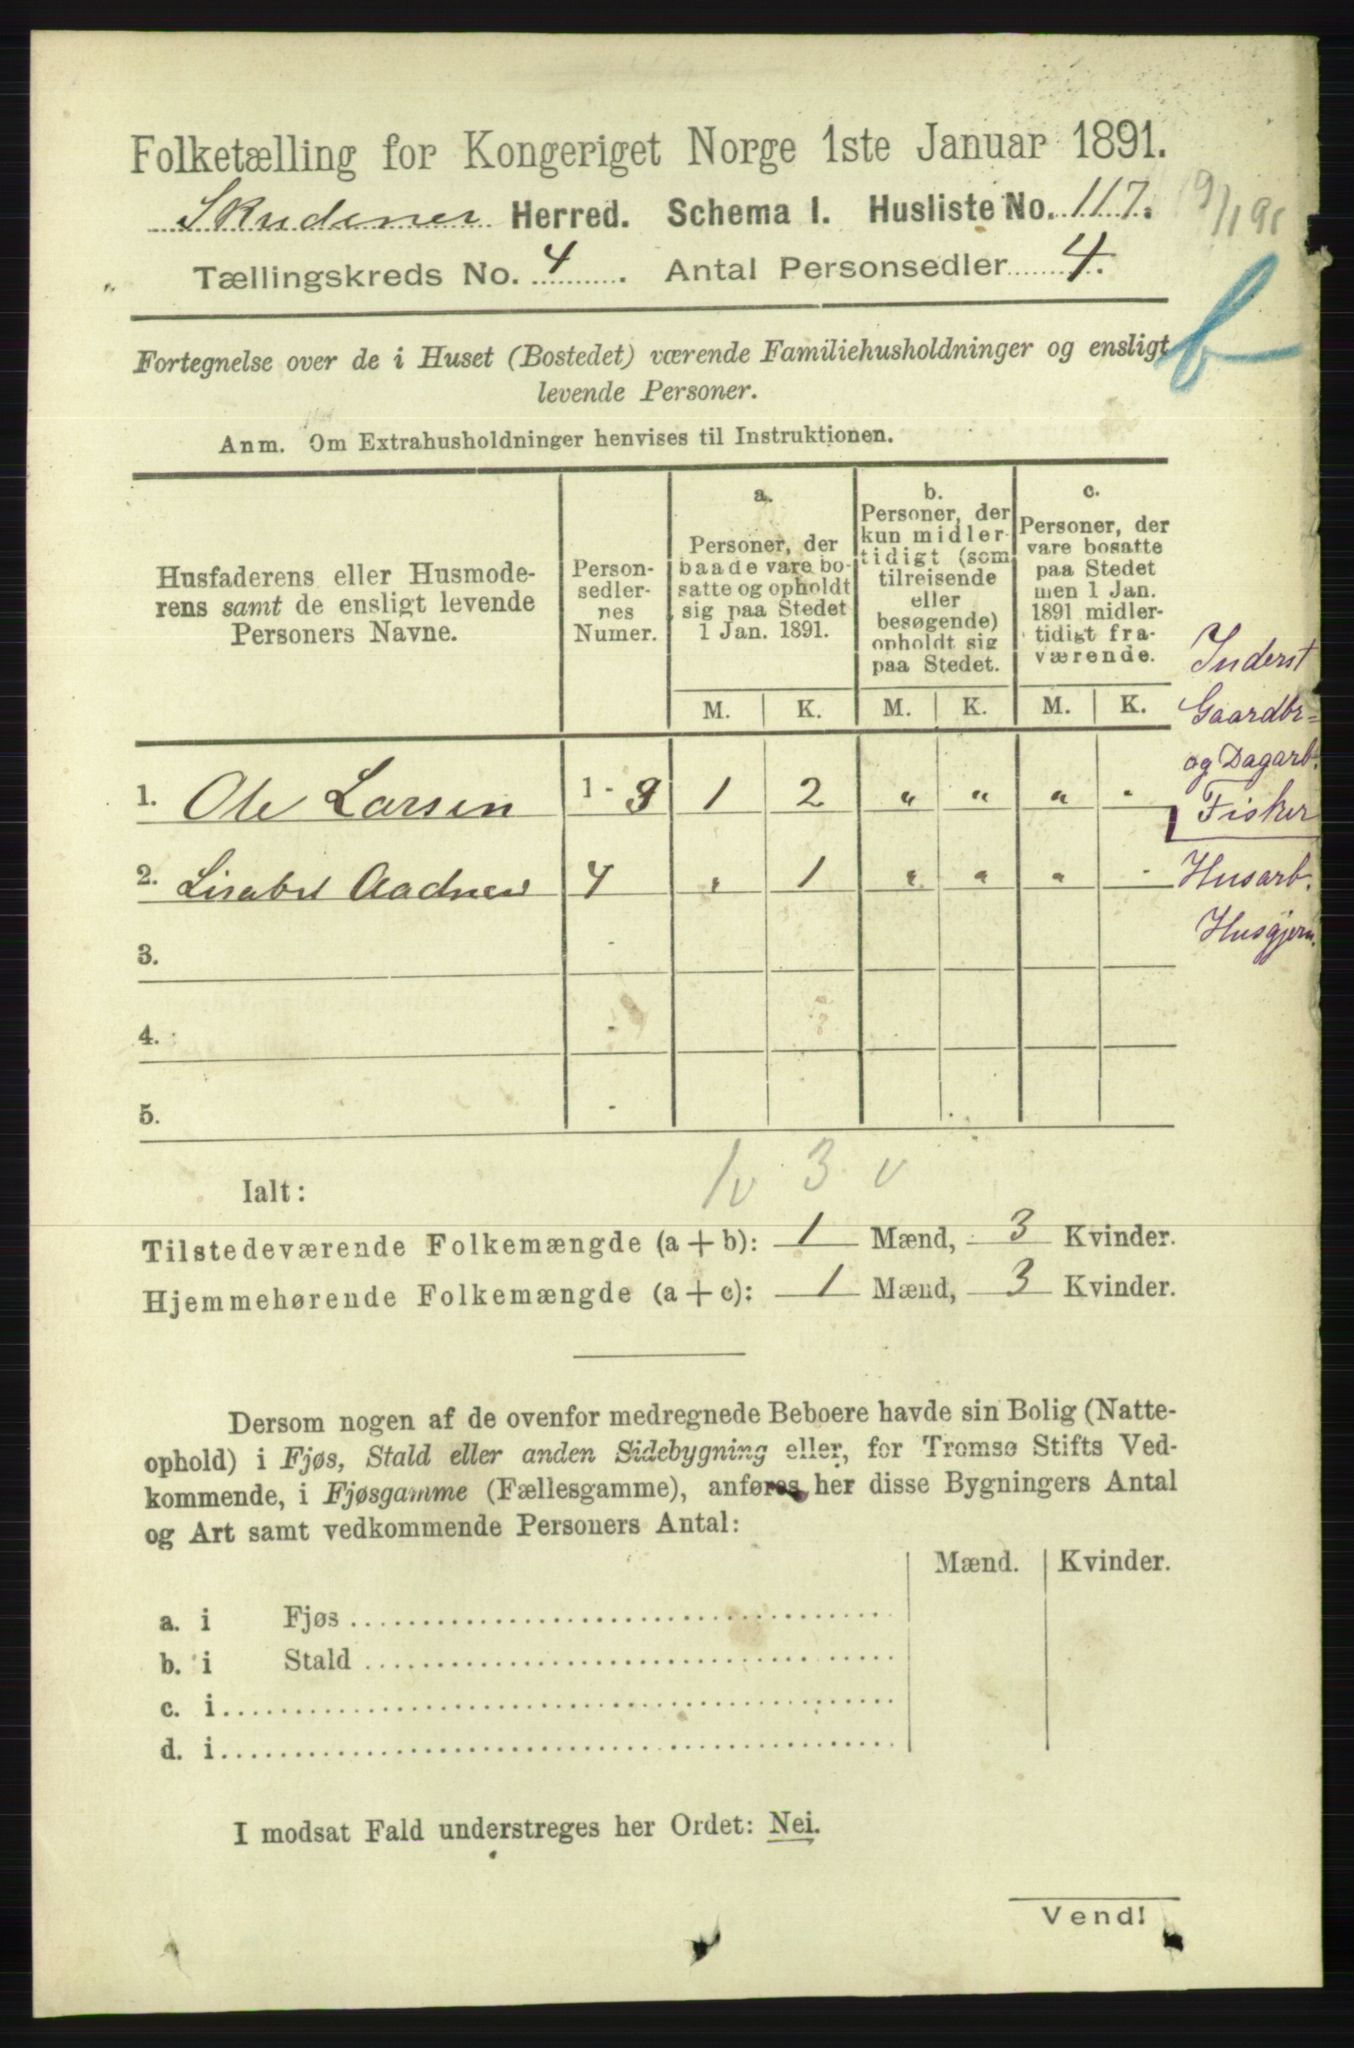 Folketælling for Kongeriget Norge 1ste Januar 1891.
Skudenes Herred. Schema I. Husliste No. 117.
Tællingskreds No. 4. Antal Personsedler 4.
Fortegnelse over de i Huset (Bostedet) værende Familiehusholdninger og ensligt
levende Personer.
Anm. Om Extrahusholdninger henvises til Instruktionen.
Husfaderens eller Husmode-
rens samt de ensligt levende
Personers Navne.
Person-
sedler-
nes
Numer.
a.
Personer, der
baade vare bo-
satte og opholdt
sig paa Stedet
1 Jan. 1891.
b.
Personer, der
kun midler-
tidigt (som
tilreisende
eller
besøgende)
opholdt sig
paa Stedet.
c.
Personer, der
vare bosatte
paa Stedet
men 1 Jan.
1891 midler-
tidigt fra-
værende.
M. K. M. K. M. K.
1. Ole Larsen 1-3 1 2 " " " "
2. Lisabet Aadnes 4 " 1 " " " "
3.
4.
5.
Inderst
Gaardbr=
og Dagarb.
Fisker
Husarb.
Husgjern.
1 v 3 v
Ialt:
Tilstedeværende Folkemængde (a+b): 1 Mænd, 3 Kvinder.
Hjemmehørende Folkemængde (a+c): 1 Mænd, 3 Kvinder.
Dersom nogen af de ovenfor medregnede Beboere havde sin Bolig (Natte-
ophold) i Fjøs, Stald eller anden Sidebygning eller, for Tromsø Stifts Ved-
kommende, i Fjøsgamme (Fællesgamme), anføres her disse Bygningers Antal
og Art samt vedkommende Personers Antal:
Mænd. Kvinder.
a. i Fjøs
b. i Stald
c. i
d. i
I modsat Fald understreges her Ordet: Nei.
Vend!